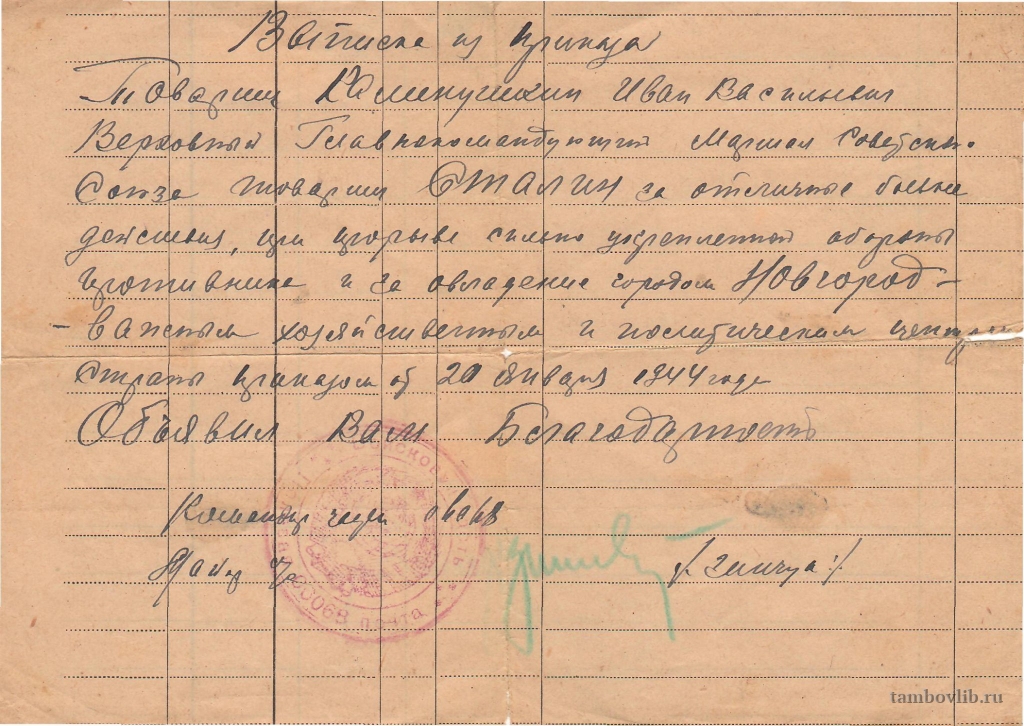 Выписка из приказа
Товарищ Каменушкин Иван Васильевич
Верховный Главнокомандующий Маршал Советск.
Союза товарищ Сталин за отличные боевые
действия, при прорыве сильно укрепленной обороны
противника и за овладение городом Новгород –
– важным хозяйственным и политическим центром
страны приказом от 20 января 1944 года
Объявил Вам Благодарность
Командир части
почта
tambovlib.ru